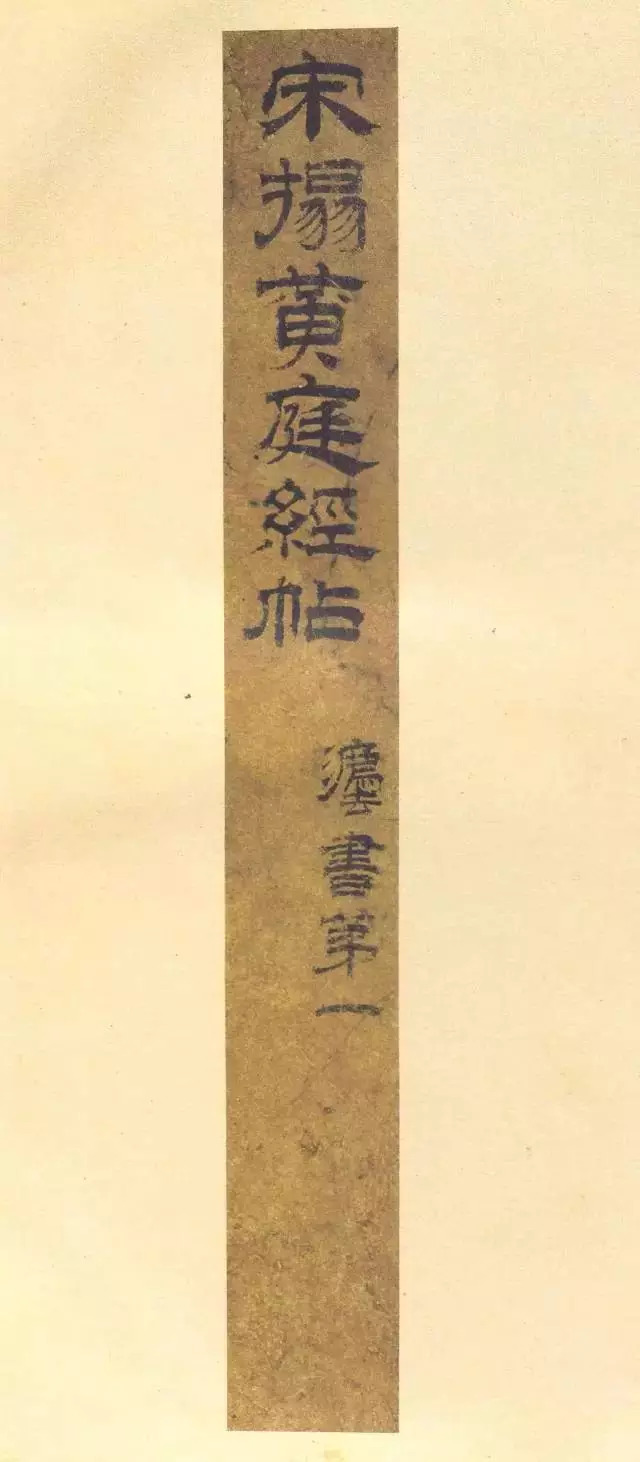 宋搨黃庭經帖
灋書第一